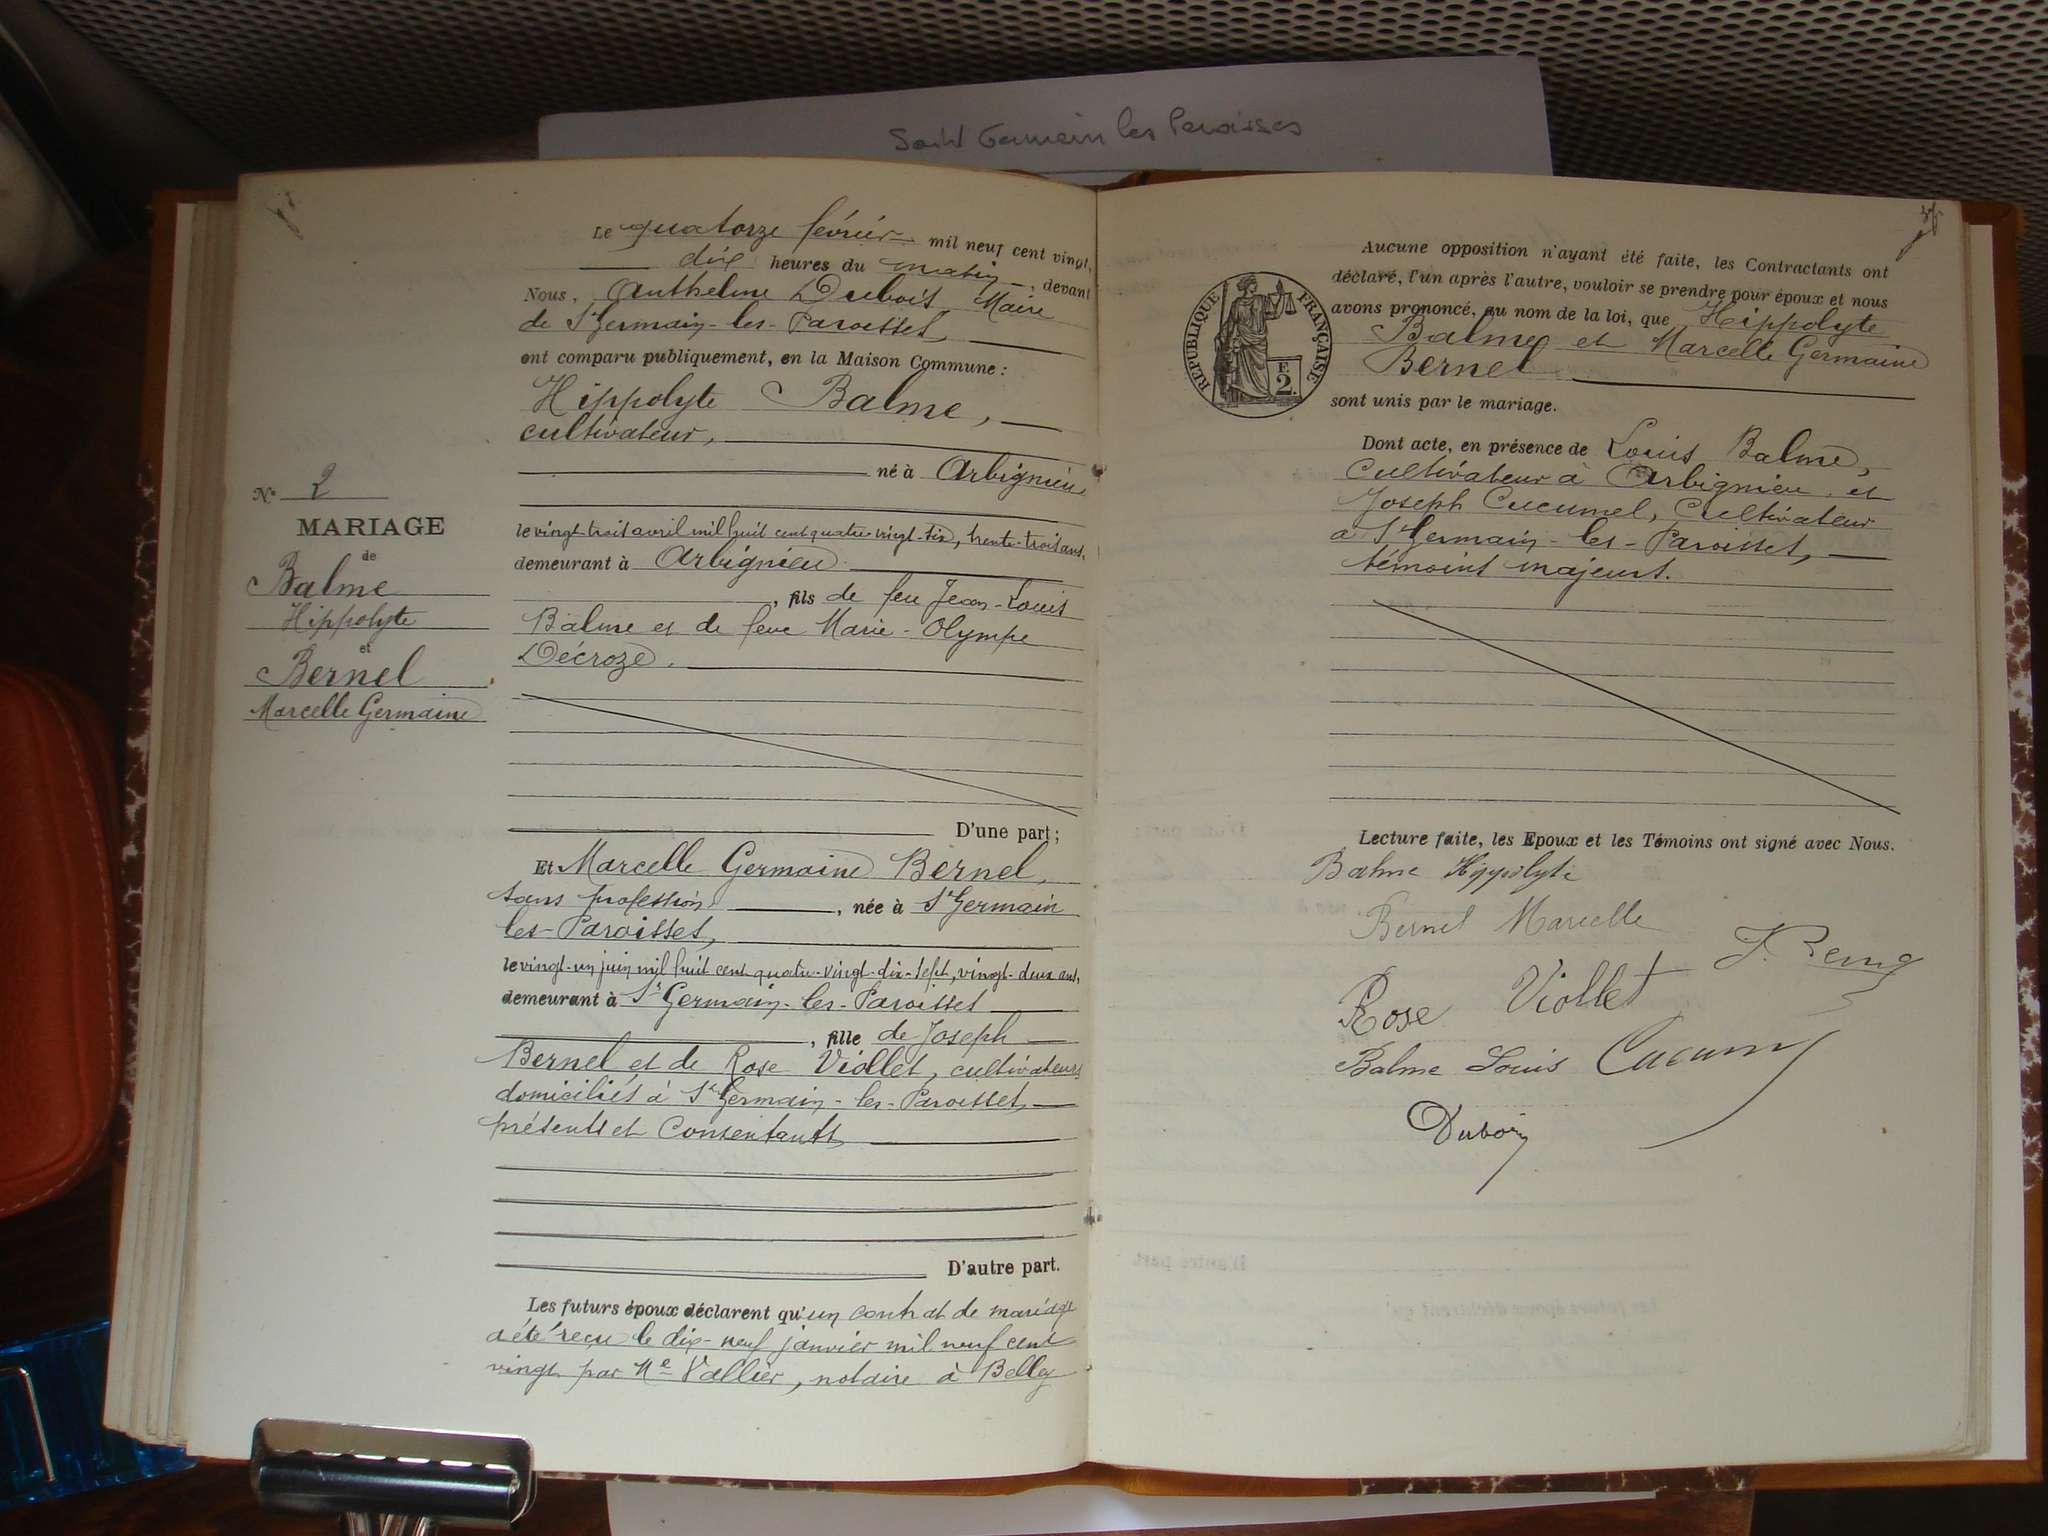 Saint Germain les Paroisses
Le quatorze février mil neuf cent vingt,
dix heures du matin, devant
Nous, Anthelme Dubois, Maire
de St Germain-les-Paroisses,
ont comparu publiquement, en la Maison Commune :
Hippolyte Balme,
cultivateur,
né à Arbignieu
le vingt-trois avril mil huit cent quatre-vingt-six, trente-trois ans,
demeurant à Arbignieu
, fils de feu Jean-Louis
Balme et de feue Marie-Olympe
Décroze.
D'une part ;
Et Marcelle Germaine Bernel,
sans profession, née à St Germain
les-Paroisses,
le vingt-un juin mil huit cent quatre-vingt-dix-sept, vingt-deux ans,
demeurant à St Germain-les-Paroisses
, fille de Joseph
Bernel et de Rose Viollet, cultivateurs
domiciliés à St Germain-les-Paroisses,
présents et consentants,
D'autre part.
Les futurs époux déclarent qu'un contrat de mariage
a été reçu le dix-neuf janvier mil neuf cent
vingt par Me Vallier, notaire à Belley
No 2
MARIAGE
de
Balme
Hippolyte
et
Bernel
Marcelle Germaine
Aucune opposition n'ayant été faite, les Contractants ont
déclaré, l'un après l'autre, vouloir se prendre pour époux et nous
avons prononcé, au nom de la loi, que Hippolyte
Balme et Marcelle Germaine
Bernel
sont unis par le mariage.
RÉPUBLIQUE FRANÇAISE
E
2.
Dont acte, en présence de Louis Balme,
Cultivateur à Arbignieu et
Joseph Cucumel, Cultivateur
à St Germain-les-Paroisses,
témoins majeurs.
Lecture faite, les Epoux et les Témoins ont signé avec Nous.
Balme Hippolyte
Bernel Marcelle
Rose Viollet
Balme Louis
Dubois